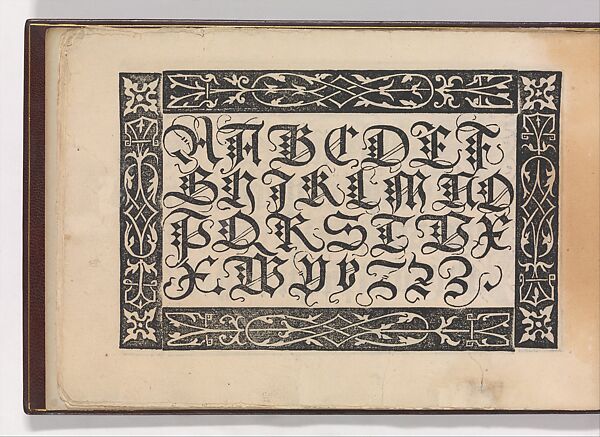 A A B C D E F
G H I K L M N O
P Q R S T V X
X W Y y Z 2 Z Z